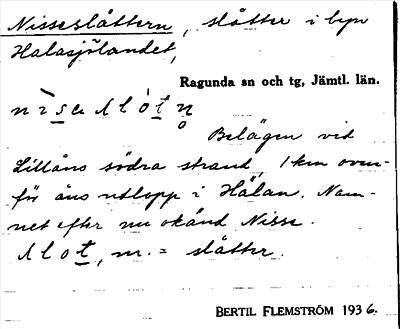 Nisseslåttern, slåtter i byn
Halasjölandet,
Ragunda sn och tg, Jämtl. län.
Belägen vid
Lillåns södra strand, 1 km ovan-
för åns utlopp i Hålan. Nam-
net efter nu okänd Nisse.
slot, m. = slåtter.
BERTIL FLEMSTRÖM 1936.